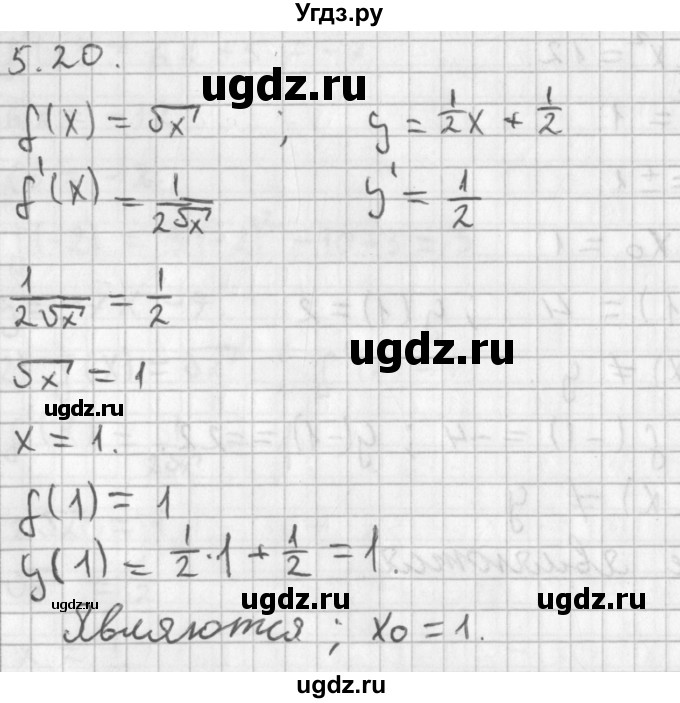 Угдз.ру
5.20.
ugdz.ru
f(x) = √x ; y = 1/2 x + 1/2
f'(x) = 1/(2√x) y' = 1/2
1/(2√x) = 1/2
ugdz.ru
√x = 1
ugdz.ru
x = 1.
f(1) = 1
y(1) = 1/2 · 1 + 1/2 = 1.
ugdz.ru
ugdz.ru
Являются ; x₀ = 1.
ugdz.ru